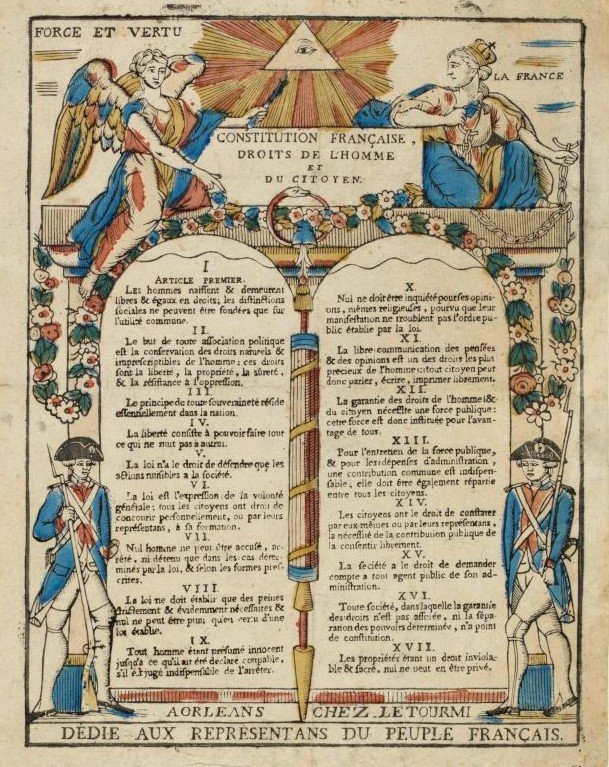 FORCE ET VERTU
LA FRANCE
CONSTITUTION FRANÇAISE,
DROITS DE L'HOMME
ET
DU CITOYEN.
I
ARTICLE PREMIER.
Les hommes naissent & demeurent
libres & égaux en droits; les distinctions
sociales ne peuvent être fondées que sur
l'utilité commune.
II.
Le but de toute association politique
est la conservation des droits naturels &
imprescriptibles de l'homme: ces droits
sont la liberté, la propriété, la sûreté,
& la résistance à l'oppression.
III.
Le principe de toute souveraineté réside
essentiellement dans la nation.
IV.
La liberté consiste à pouvoir faire tout
ce qui ne nuit pas à autrui.
V.
La loi n'a le droit de défendre que les
actions nuisibles à la société.
VI.
La loi est l'expression de la volonté
générale; tous les citoyens ont droit de
concourir personnellement, ou par leurs
représentans, à sa formation.
VII.
Nul homme ne peut être accusé, ar-
rêté, ni détenu que dans les cas déter-
minés par la loi, & selon les formes pres-
crites.
VIII.
La loi ne doit établir que des peines
strictement & évidemment nécessaires &
nul ne peut être puni qu'en vertu d'une
loi établie.
IX.
Tout homme étant présumé innocent
jusqu'a ce qu'il ait été déclaré coupable,
s'il est jugé indispensable de l'arrêter.
X.
Nul ne doit être inquiété pour ses opini-
ons, mêmes religieuses, pourvu que leur
manifestation ne troublent pas l'ordre pu-
blic établie par la loi.
XI.
La libre communication des pensées
& des opinions est un des droits les plus
precieux de l'homme: tout citoyen peut
donc parler, écrire, imprimer librement.
XII.
La garantie des droits de l'homme &
du citoyen nécessite une force publique:
cette force est donc instituée pour l'avan-
tage de tous.
XIII.
Pour l'entretien de la force publique,
& pour les dépenses d'administration,
une contribution commune est indispen-
sable, elle doit être également répartie
entre tous les citoyens.
XIV.
Les citoyens ont le droit de constater
par eux-mêmes ou par leurs représentans,
la nécessité de la contribution publique de
la consentir librement.
XV.
La société a le droit de demander
compte a tout agent public de son ad-
ministration.
XVI.
Toute société, dans laquelle la garantie
des droits n'est pas assurée, ni la sépa-
ration des pouvoirs determinée, n'a point
de constitution.
XVII.
Les propriétés étant un droit inviola-
ble & sacré, nul ne peut en être privé.
A ORLEANS CHEZ LETOURMI
DÉDIÉ AUX REPRÉSENTANS DU PEUPLE FRANÇAIS.